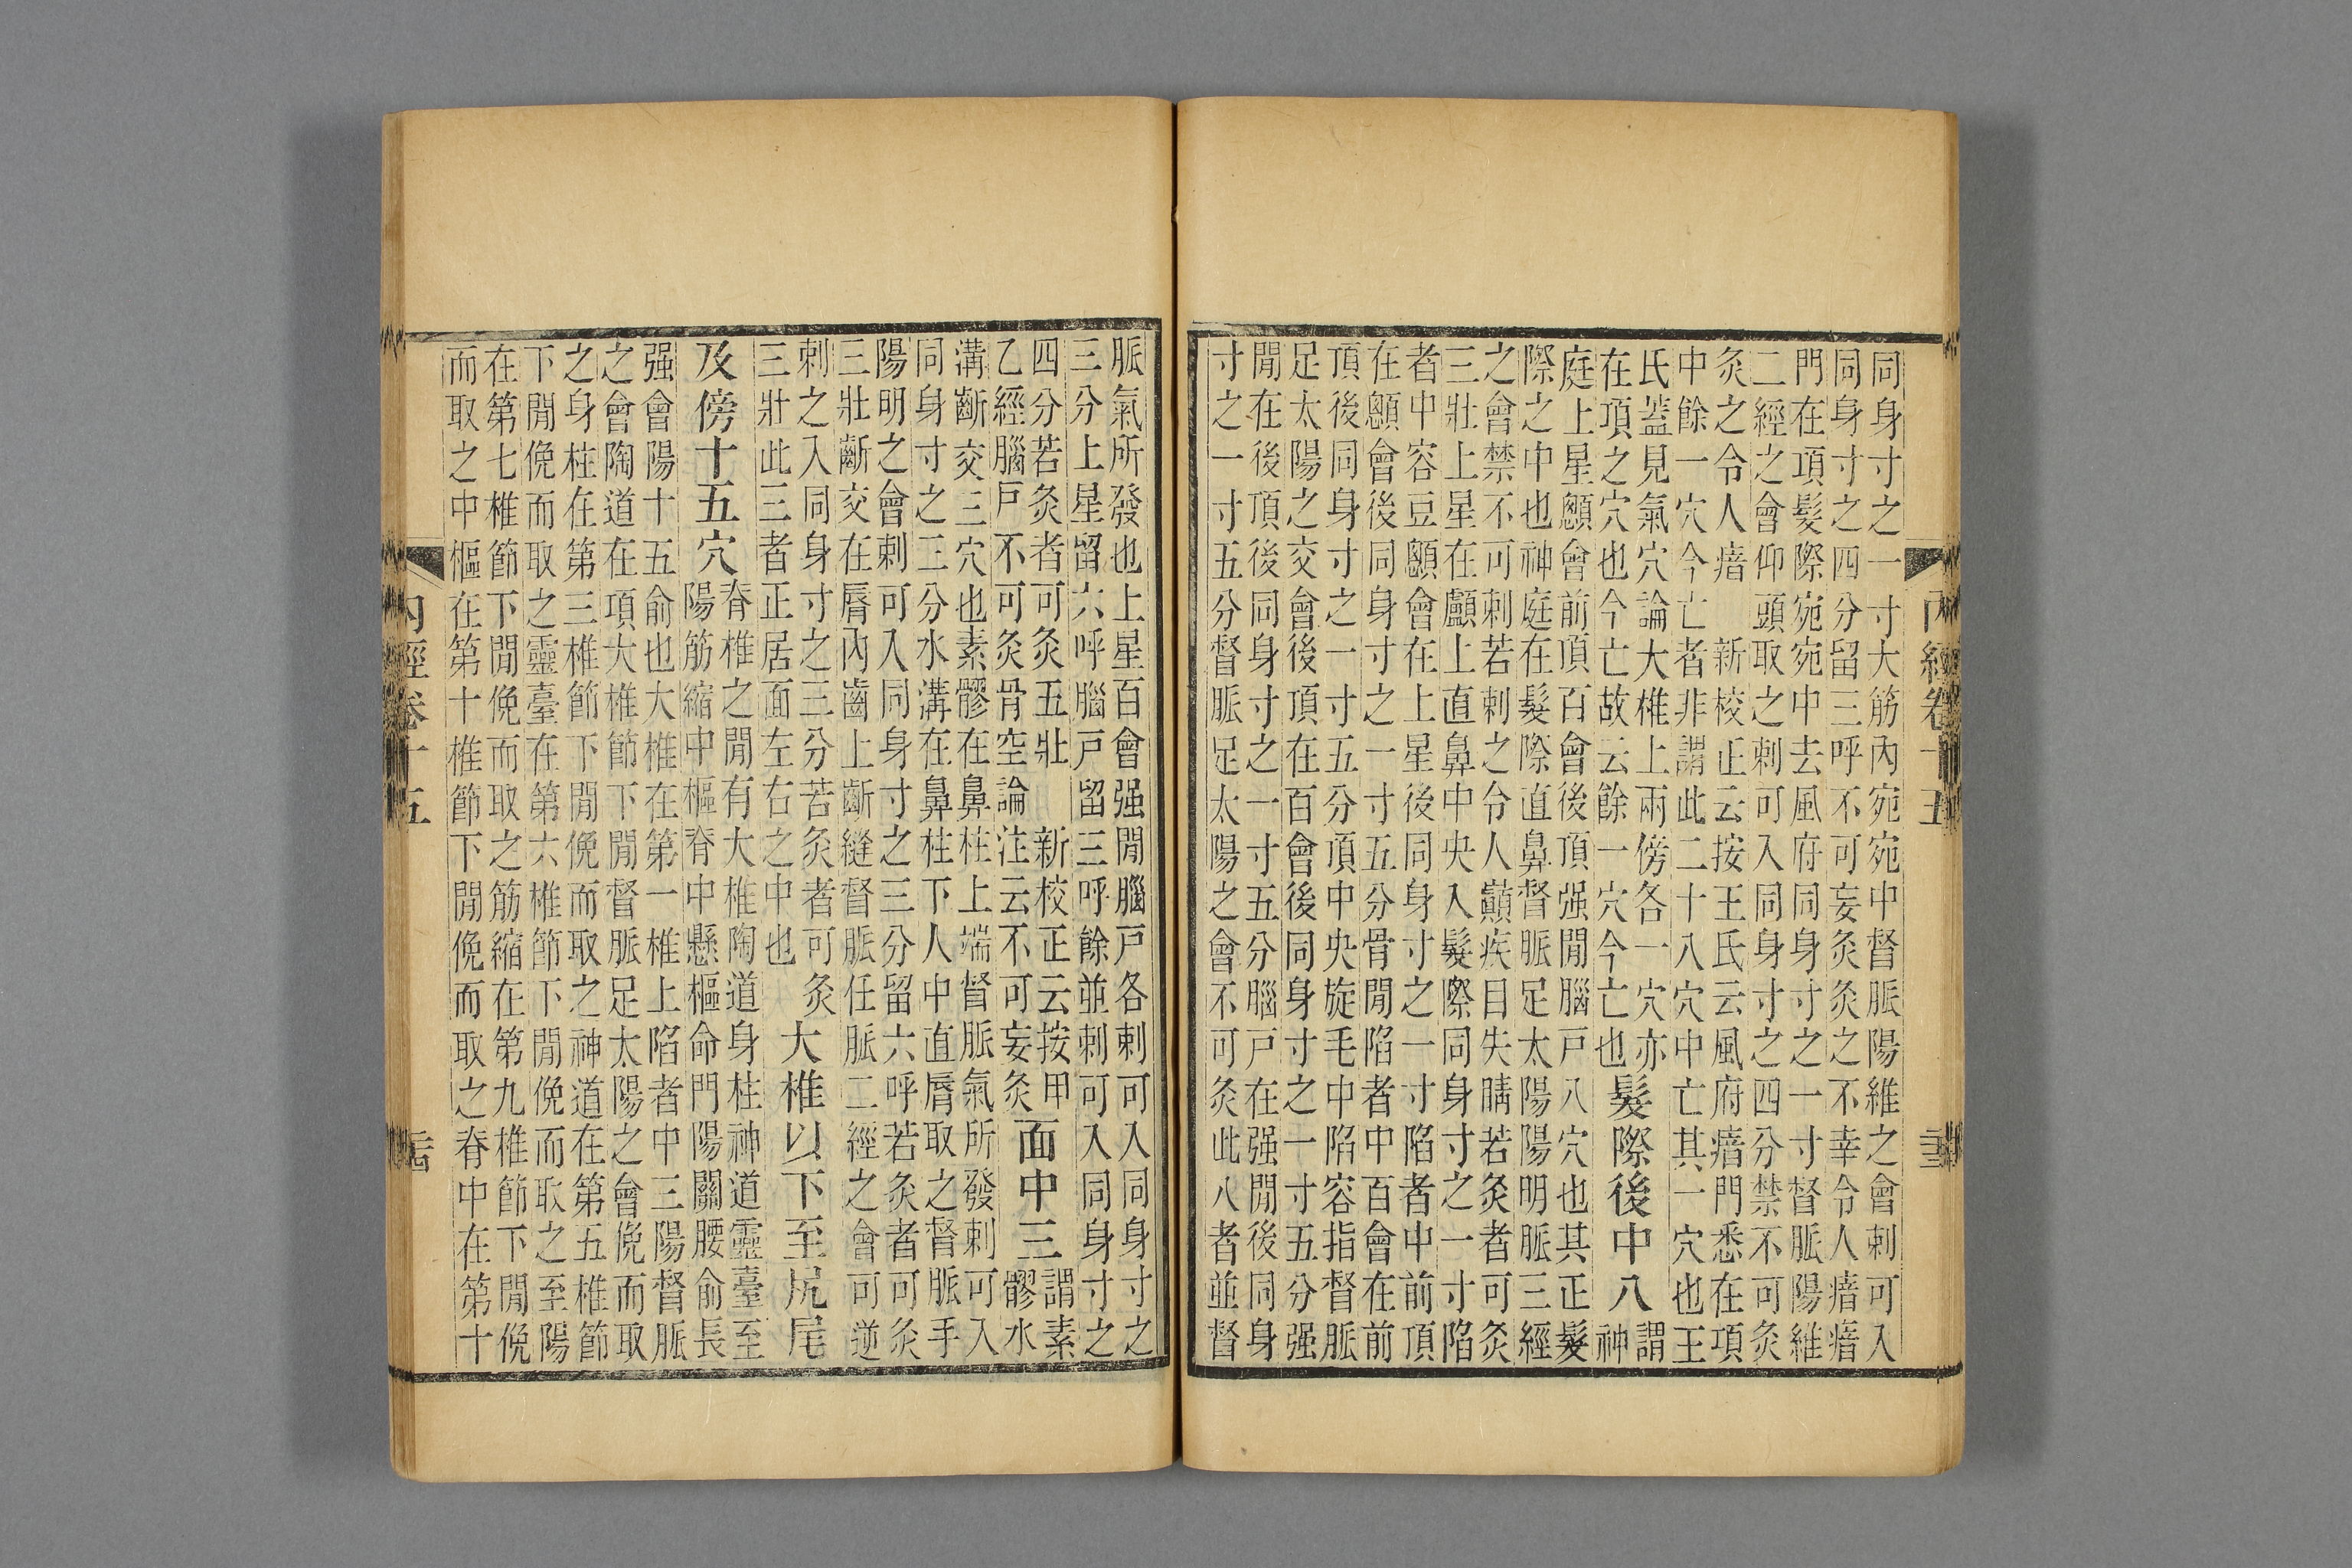 內經卷十五
同身寸之一寸大筋內宛宛中督脈陽維之會刺可入
同身寸之四分留三呼不可妄灸灸之不幸令人瘖瘖
門在項髮際宛宛中去風府同身寸之一寸督脈陽維
二經之會仰頭取之刺可入同身寸之四分禁不可灸
灸之令人瘖 新校正云按王氏云風府瘖門悉在項
中餘一穴今亡者非謂此二十八穴中亡其一穴也王
氏蓋見氣穴論大椎上兩傍各一穴亦
在項之穴也今亡故云餘一穴今亡也
髮際後中八
謂
神
庭上星顖會前頂百會後頂强閒腦戶八穴也其正髮
際之中也神庭在髮際直鼻督脈足太陽陽明脈三經
之會禁不可刺若刺之令人巔疾目失睛若灸者可灸
三壯上星在顱上直鼻中央入髮際同身寸之一寸陷
者中容豆顖會在上星後同身寸之一寸陷者中前頂
在顖會後同身寸之一寸五分骨閒陷者中百會在前
頂後同身寸之一寸五分頂中央旋毛中陷容指督脈
足太陽之交會後頂在百會後同身寸之一寸五分强
閒在後頂後同身寸之一寸五分腦戶在强閒後同身
寸之一寸五分督脈足太陽之會不可灸此八者並督
脈氣所發也上星百會强閒腦戶各刺可入同身寸之
三分上星留六呼腦戶留三呼餘並刺可入同身寸之
四分若灸者可灸五壯 新校正云按甲
乙經腦戶不可灸骨空論注云不可妄灸
面中三
謂素
髎水
溝齗交三穴也素髎在鼻柱上端督脈氣所發刺可入
同身寸之三分水溝在鼻柱下人中直脣取之督脈手
陽明之會刺可入同身寸之三分留六呼若灸者可灸
三壯齗交在脣內齒上齗縫督脈任脈二經之會可逆
刺之入同身寸之三分若灸者可灸
三壯此三者正居面左右之中也
大椎以下至尻尾
及傍十五穴
脊椎之閒有大椎陶道身柱神道靈臺至
陽筋縮中樞脊中懸樞命門陽關腰俞長
强會陽十五俞也大椎在第一椎上陷者中三陽督脈
之會陶道在項大椎節下閒督脈足太陽之會俛而取
之身柱在第三椎節下閒俛而取之神道在第五椎節
下閒俛而取之靈臺在第六椎節下閒俛而取之至陽
在第七椎節下閒俛而取之筋縮在第九椎節下閒俛
而取之中樞在第十椎節下閒俛而取之脊中在第十
內經卷十五